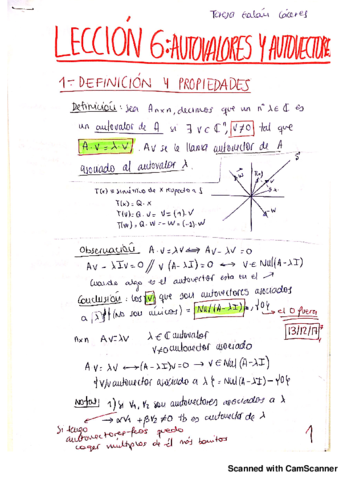 Teresa Galán Cáceres
LECCIÓN 6: AUTOVALORES Y AUTOVECTORE
1- DEFINICIÓN Y PROPIEDADES
Definición: sea Anxn, decimos que un nº λ∈ℂ es
un autovalor de A si ∃ v∈ℂⁿ, v≠0 tal que
A·v = λv Av se llama autovector de A
asociado al autovalor λ.
T(x) = simétrico de x respecto a S
T(x) = Q·x
T(v) = Q·v = v = (1)·v
T(w) = Q·w = -w = (-1)·w
Observación A·v = λv ⟷ Av - λv = 0
Av - λIv = 0 // v(A-λI) = 0 ⟷ v∈Nul(A-λI)
cuando algo es el autovector esta en el
Conclusión: los v que son autovectores asociados
a λ (no son únicos) = Nul(A-λI) - {0}
el 0 fuera
13/12/17
nxn Av = λv λ∈ℂ autovalor
v≠0 autovector asociado
Av = λv ⟷ (A-λI)v = 0 ⟷ v∈Nul(A-λI)
{v/v autovector asociado a λ} = Nul(A-λI) - {0}
Notas: 1) Si v₁, v₂ son autovectores asociados a λ
→ αv₁ + βv₂ ≠ 0 tb es autovector de λ
Si tengo
autovectores feos puedo
coger múltiplos de él más bonitos
1
Scanned with CamScanner